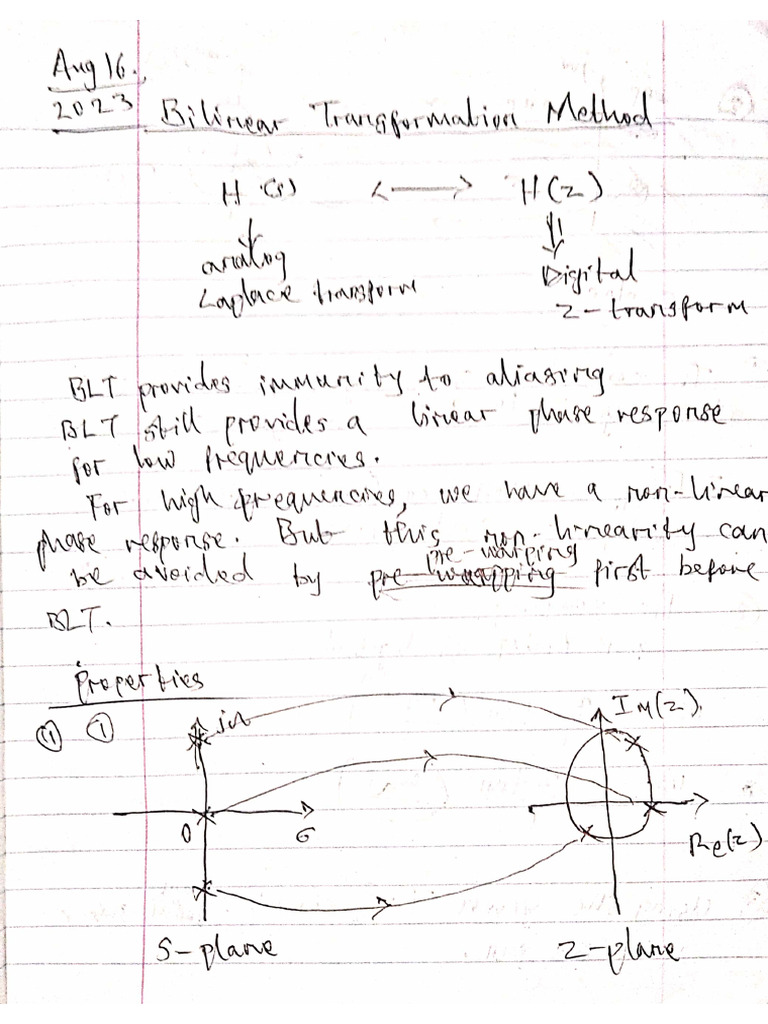 Aug 16.,
2023 Bilinear Transformation Method
H(s) <—> H(z)
analog Digital
Laplace transform z-transform
BLT provides immunity to aliasing
BLT still provides a linear phase response
for low frequencies.
For high frequencies, we have a non-linear
phase response. But this non-linearity can
pre-warping
be avoided by pre-wrapping first before
BLT.
Properties
(ii) (i) jΩ Im(z).
0 σ Re(z)
S-plane Z-plane